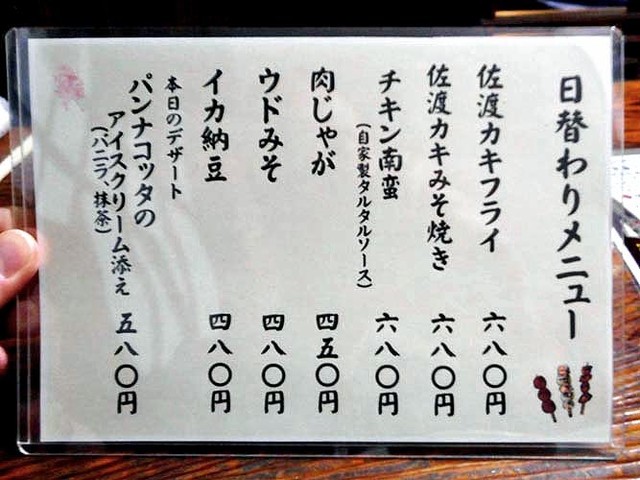 日替わりメニュー
佐渡カキフライ 六八〇円
佐渡カキみそ焼き 六八〇円
チキン南蛮 六八〇円
(自家製タルタルソース)
肉じゃが 四五〇円
ウドみそ 四八〇円
イカ納豆 四八〇円
本日のデザート
パンナコッタの
アイスクリーム添え 五八〇円
(バニラ、抹茶)